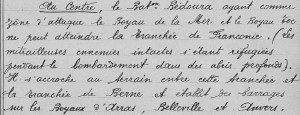 Au Centre, le Bat.on Bédoura ayant comme
zône d'attaque le Boyau de la Mer et le Boyau 600
ne peut atteindre la tranchée de Franconie. (Les
mitrailleuses ennemies intactes s'étant réfugiées
pendant le bombardement dans des abris profonds).
Il s'accroche au terrain entre cette tranchée et
la tranchée de Berne et établit des barrages
sur les Boyaux d'Arras, Belleville et Anvers.